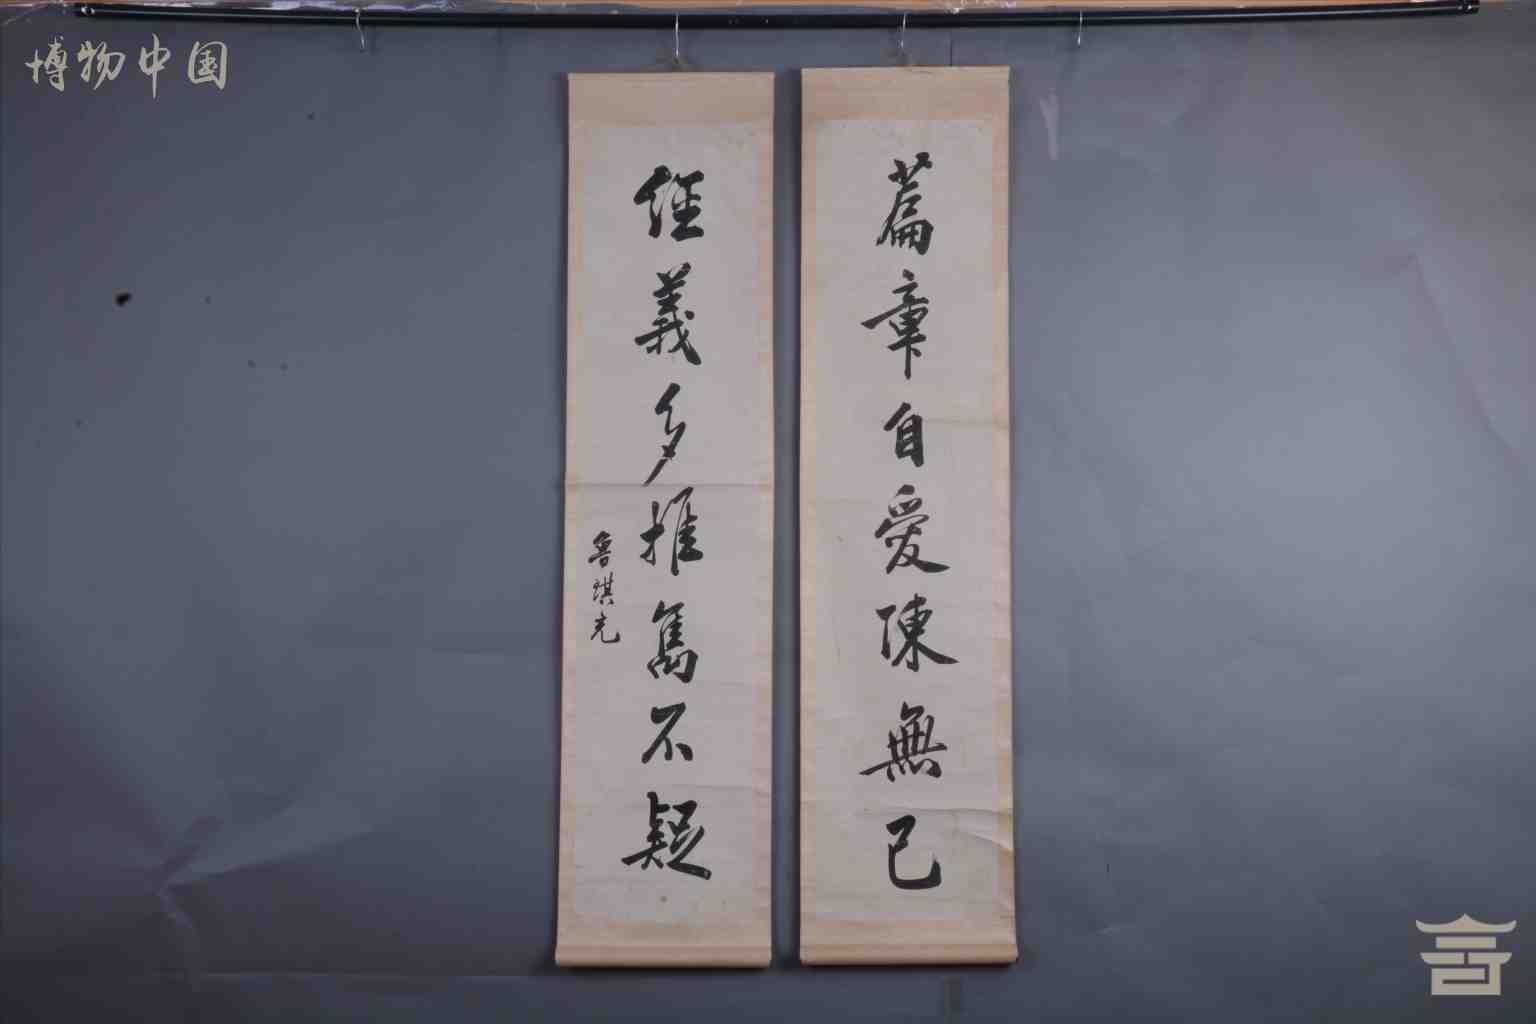 博物中国
篇章自愛陳無己
經義多推雋不疑
魯琪光